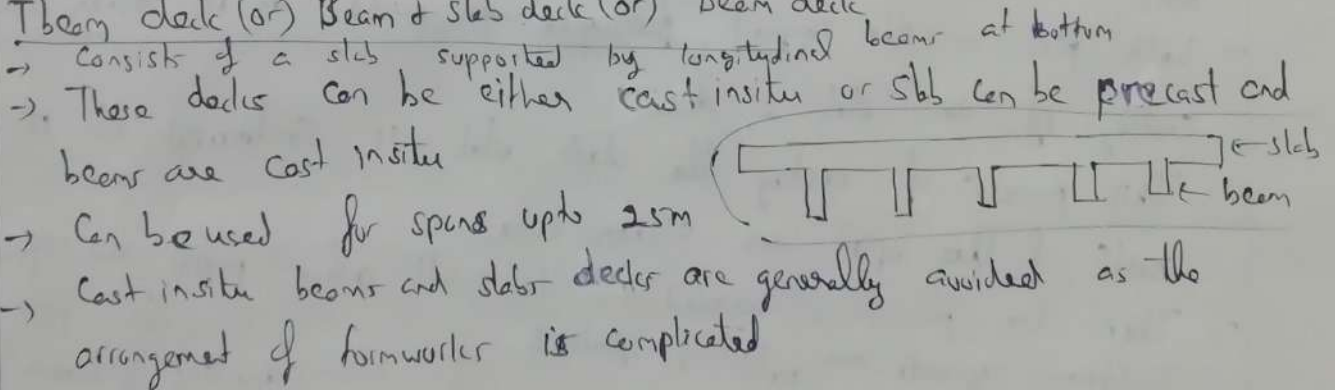 Tbeam deck (or) Beam & slab deck (or) Beam deck
→ Consists of a slab supported by longitudinal beams at bottom
→. These decks can be either cast insitu or slab can be precast and
beams are cast insitu
← slab
← beam
→ Can be used for spans upto 25m
→ Cast insitu beams and slabs decks are generally avoided as the
arrangement of formworks is complicated